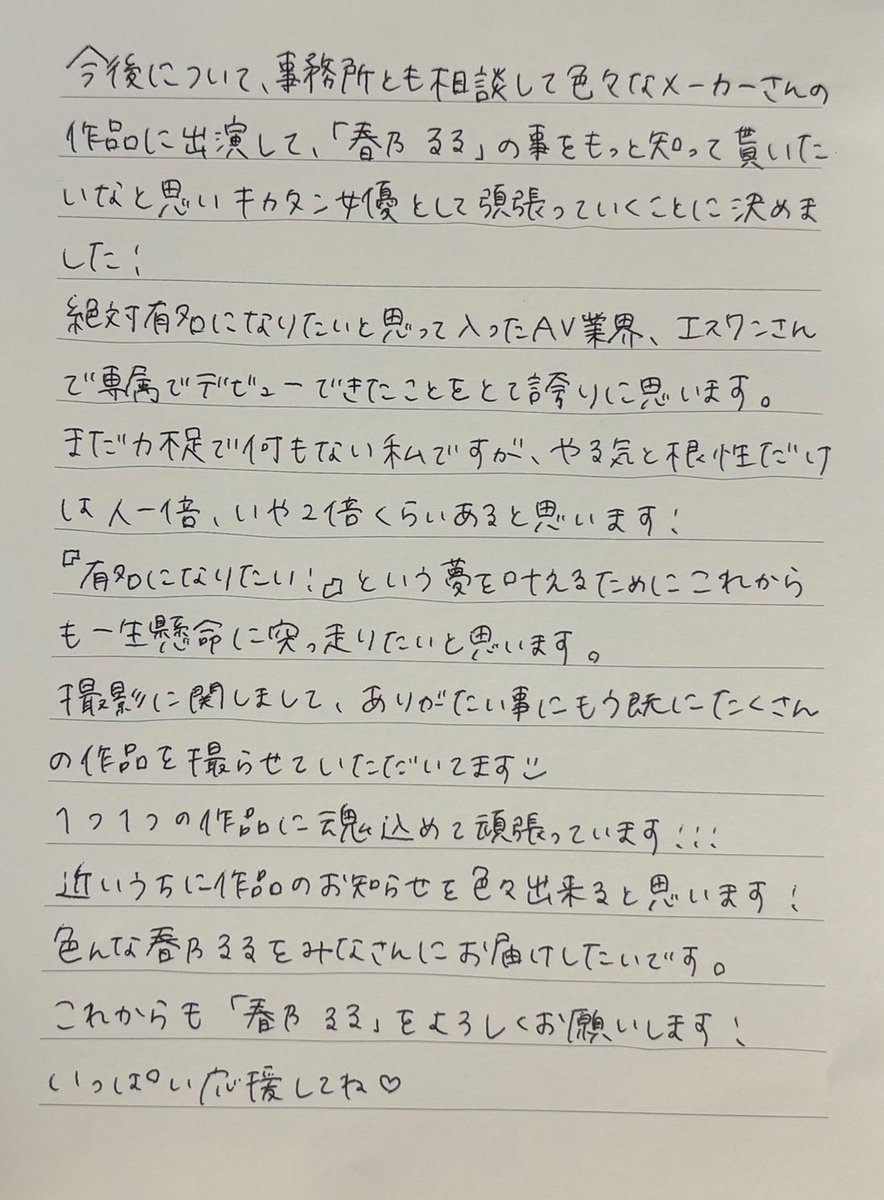 今後について、事務所とも相談して色々なメーカーさんの
作品に出演して、「春乃 るる」の事をもっと知って貰いた
いなと思いキカタン女優として頑張っていくことに決めま
した!
絶対有名になりたいと思って入ったAV業界、エスワンさん
で専属でデビューできたことをとて誇りに思います。
まだ力不足で何もない私ですが、やる気と根性だけ
は人一倍、いや2倍くらいあると思います!
『有名になりたい!』という夢を叶えるためにこれから
も一生懸命に突っ走りたいと思います。
撮影に関しまして、ありがたい事にもう既にたくさん
の作品を撮らせていただいてます
1つ1つの作品に魂込めて頑張っています!!!
近いうちに作品のお知らせを色々出来ると思います!
色んな春乃るるをみなさんにお届けしたいです。
これからも「春乃 るる」をよろしくお願いします!
いっぱい応援してね♡